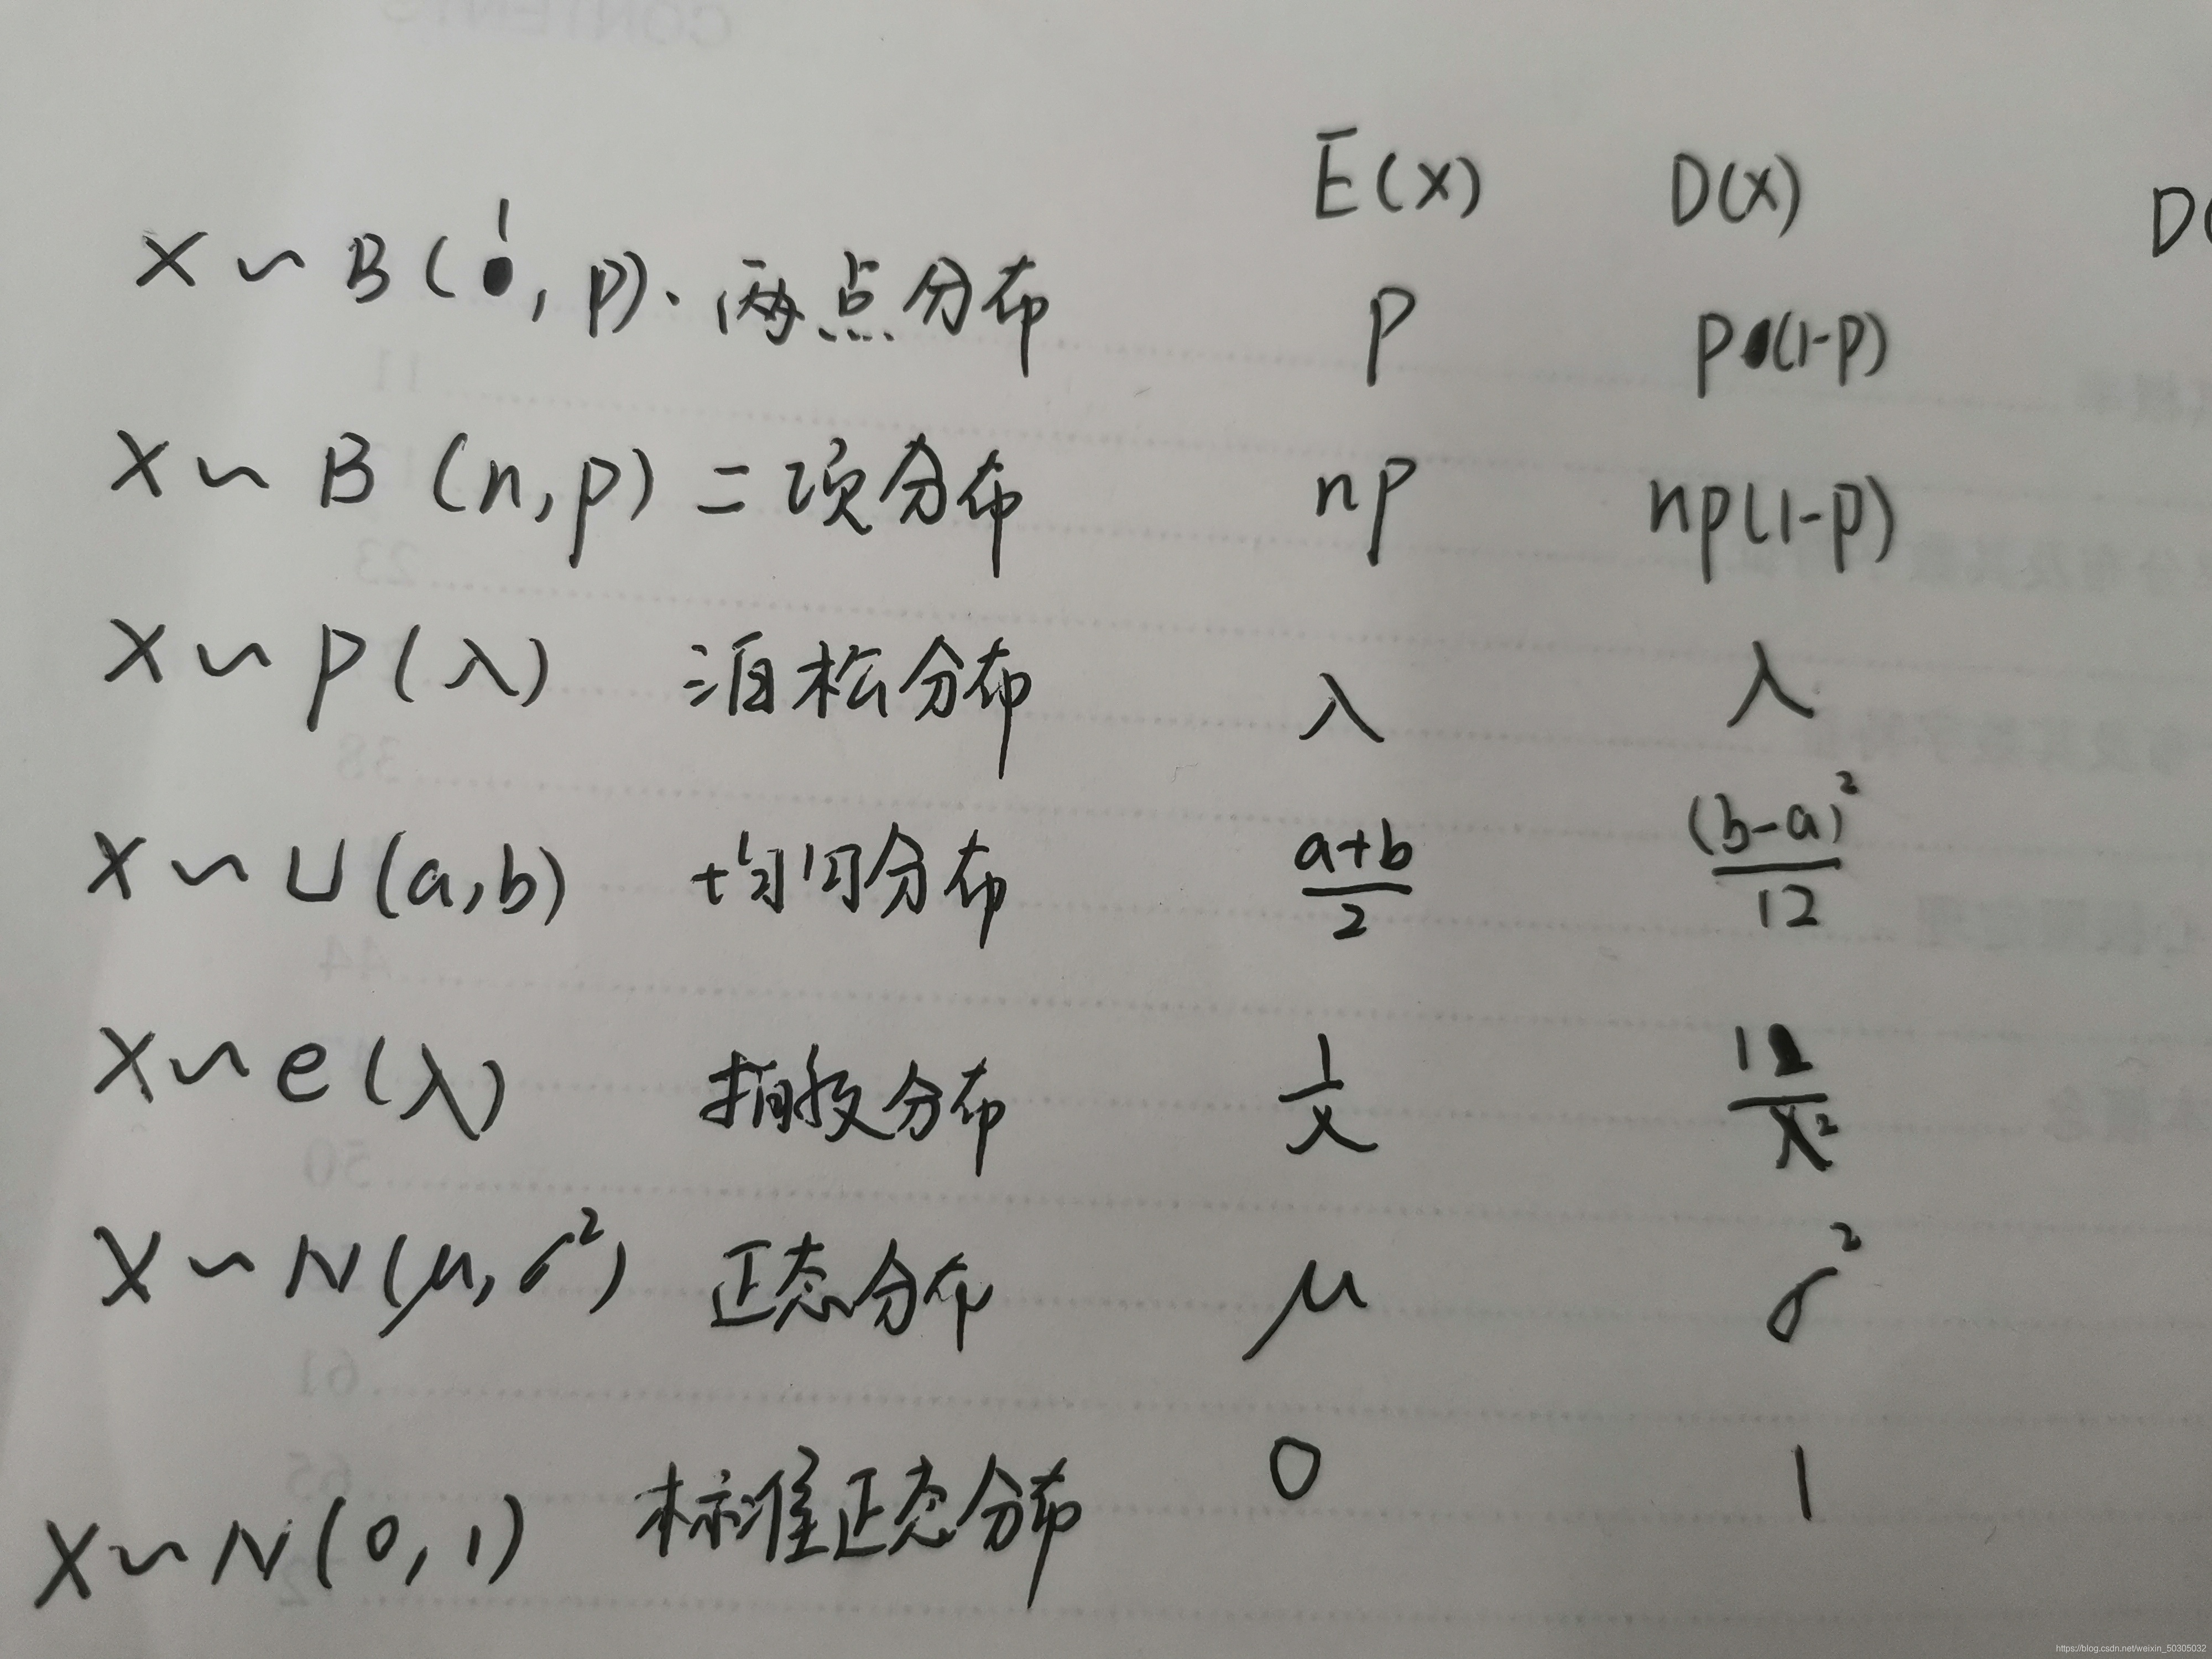 E(X) D(X) D(
X ~ B(1, p). 两点分布 p p(1-p)
X ~ B (n,p) 二项分布 np np(1-p)
X ~ P(λ) 泊松分布 λ λ
X ~ U(a,b) 均匀分布 a+b/2 (b-a)²/12
X ~ e(λ) 指数分布 1/λ 1/λ²
X ~ N(μ,σ²) 正态分布 μ σ²
X ~ N(0,1) 标准正态分布 0 1
https://blog.csdn.net/weixin_50305032